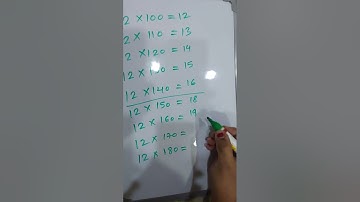 2 × 100 = 12
2 × 110 = 13
2 × 120 = 14
12 × 130 = 15
12 × 140 = 16
12 × 150 = 18
12 × 160 = 19
12 × 170 =
12 × 180 =